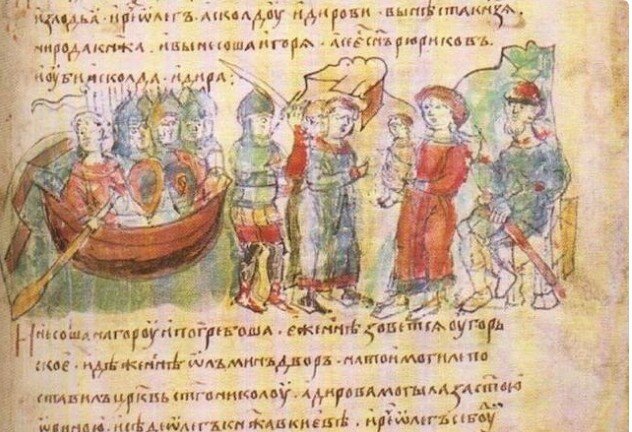 излодьꙗ · ирⷱ҇еѡлегъ · асколдоу идирови · вынѣстакнѧзѧ ·
ниродакнѧжа · ивынесошаигорѧ · асесн҃ърюриковъ ·
иоубишаасколда · идира :
Инесошанагороу ипогребоша · еженн҃ѣзоветсѧоугорь
ское · идѣженн҃ѣ ѡлъминъдворъ · натоимогилепо
ставилъ црк҃въ ст҃гониколоу · адировамогылазаст҃ою
ѡриною · исѣдеѡлегъкнѧжавкиевѣ · ирⷱ҇еѡлегъсебоуⷣ